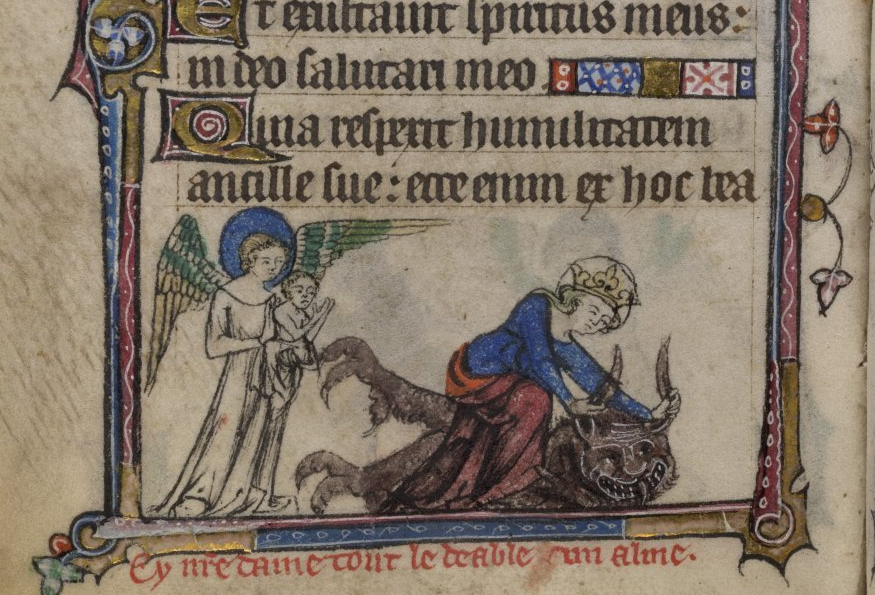 Et exultauit spiritus meus:
in deo salutari meo
Quia respexit humilitatem
ancille sue: ecce enim ex hoc bea
Cy nr̄e dame tout le deable alme.